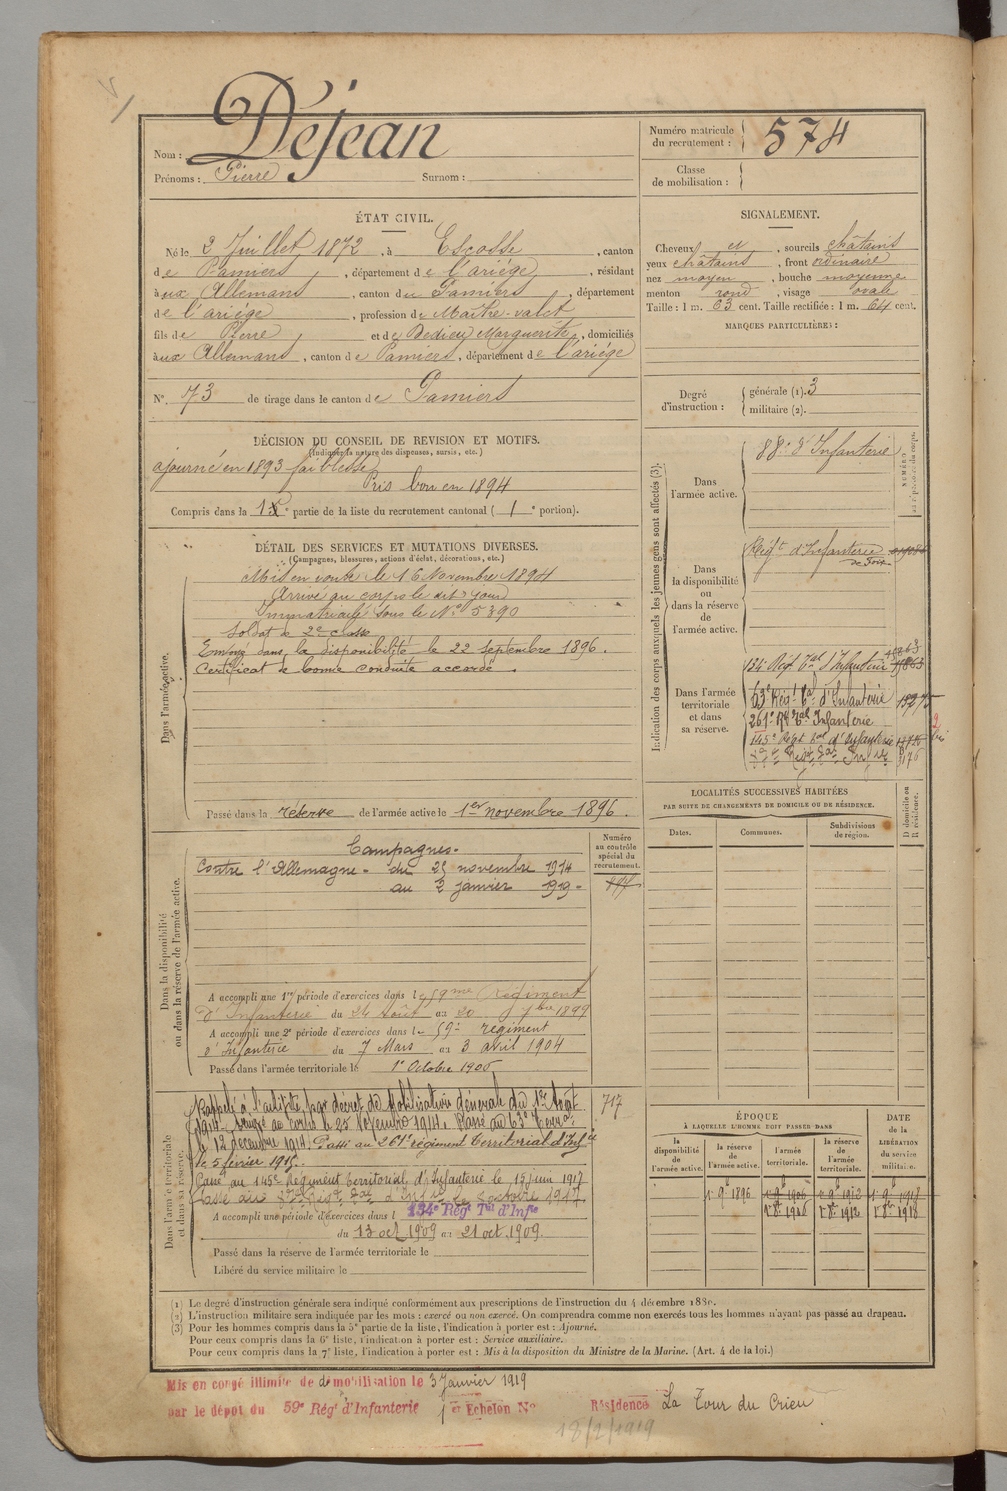 Nom : Déjean
Prénoms : Pierre Surnom :
Numéro matricule du recrutement : 574
Classe de mobilisation :
ÉTAT CIVIL.
Né le 2 Juillet 1872, à Escosse, canton
de Pamiers, département de l'ariége, résidant
à aux Allemans, canton de Pamiers, département
de l'ariége, profession de Maître-valet
fils de Pierre et de Dedieu Marguerite, domiciliés
à aux Allemans, canton de Pamiers, département de l'ariége
N° 73 de tirage dans le canton de Pamiers
SIGNALEMENT.
Cheveux et, sourcils châtains
yeux châtains, front ordinaire
nez moyen, bouche moyenne
menton rond, visage ovale
Taille : 1 m. 63 cent. Taille rectifiée : 1 m. 64 cent.
MARQUES PARTICULIÈRES :
Degré d'instruction : générale (1). 3
militaire (2).
DÉCISION DU CONSEIL DE REVISION ET MOTIFS.
(Indiquer la nature des dispenses, sursis, etc.)
ajourné en 1893 faiblesse
Pris bon en 1894
Compris dans la 1e partie de la liste du recrutement cantonal ( 1e portion).
DÉTAIL DES SERVICES ET MUTATIONS DIVERSES.
(Campagnes, blessures, actions d'éclat, décorations, etc.)
Dans l'armée active.
Mis en route le 16 Novembre 1894
Arrivé au corps le dit jour
Immatriculé sous le N° 5390
Soldat de 2e classe
Envoyé dans la disponibilité le 22 septembre 1896.
Certificat de bonne conduite accordé.
Passé dans la réserve de l'armée active le 1er novembre 1896.
Indication des corps auxquels les jeunes gens sont affectés (3).
NUMÉRO
Dans l'armée active.
88e d'Infanterie
Dans la disponibilité ou dans la réserve de l'armée active.
Régt d'Infanterie de Foix
Dans l'armée territoriale et dans sa réserve.
134 Rég. Tal d'Infanterie
63e Régt Tal d'Infanterie
261e Rt Tal Infanterie
145e Régt Tal d'Infanterie
LOCALITÉS SUCCESSIVES HABITÉES
PAR SUITE DE CHANGEMENTS DE DOMICILE OU DE RÉSIDENCE.
Dates. Communes. Subdivisions de région. D domicile ou R résidence.
Dans la disponibilité ou dans la réserve de l'armée active.
Numéro au contrôle spécial du recrutement.
Campagnes.
Contre l'Allemagne - du 25 novembre 1914
au 2 janvier 1919 -
A accompli une 1re période d'exercices dans le 59me Régiment
d'Infanterie du 24 Août au 20 7bre 1899
A accompli une 2e période d'exercices dans le 59e régiment
d'Infanterie du 7 Mars au 3 avril 1904
Passé dans l'armée territoriale le 1er Octobre 1906
Dans l'armée territoriale et dans sa réserve.
717
Rappelé à l'activité par décret de Mobilisation générale du 1er Août
1914. Arrivé au Corps le 25 Novembre 1914. Passé au 63e Terral
le 12 décembre 1914. Passé au 261e régiment Territorial d'Infie
le 5 février 1915.
Passé au 145e Régiment Territorial d'Infanterie le 15 juin 1917
A accompli une période d'exercices dans l 134e Régt Tal d'Infie
du 13 oct. 1909 au 21 oct. 1909.
Passé dans la réserve de l'armée territoriale le
Libéré du service militaire le
ÉPOQUE
À LAQUELLE L'HOMME DOIT PASSER DANS
DATE de la LIBÉRATION du service militaire.
la disponibilité de l'armée active. la réserve de l'armée active. l'armée territoriale. la réserve de l'armée territoriale.
1. 9e 1896 1. 9e 1906 1. 9e 1912 1. 9e 1918
(1) Le degré d'instruction générale sera indiqué conformément aux prescriptions de l'instruction du 4 décembre 1889.
(2) L'instruction militaire sera indiquée par les mots : exercé ou non exercé. On comprendra comme non exercés tous les hommes n'ayant pas passé au drapeau.
(3) Pour les hommes compris dans la 5e partie de la liste, l'indication à porter est : Ajourné.
Pour ceux compris dans la 6e liste, l'indication à porter est : Service auxiliaire.
Pour ceux compris dans la 7e liste, l'indication à porter est : Mis à la disposition du Ministre de la Marine. (Art. 4 de la loi.)
Mis en congé illimité de démobilisation le 3 Janvier 1919
par le dépôt du 59e Régt d'Infanterie 1er Echelon N° Résidence La Tour du Crieu
18/2/1919